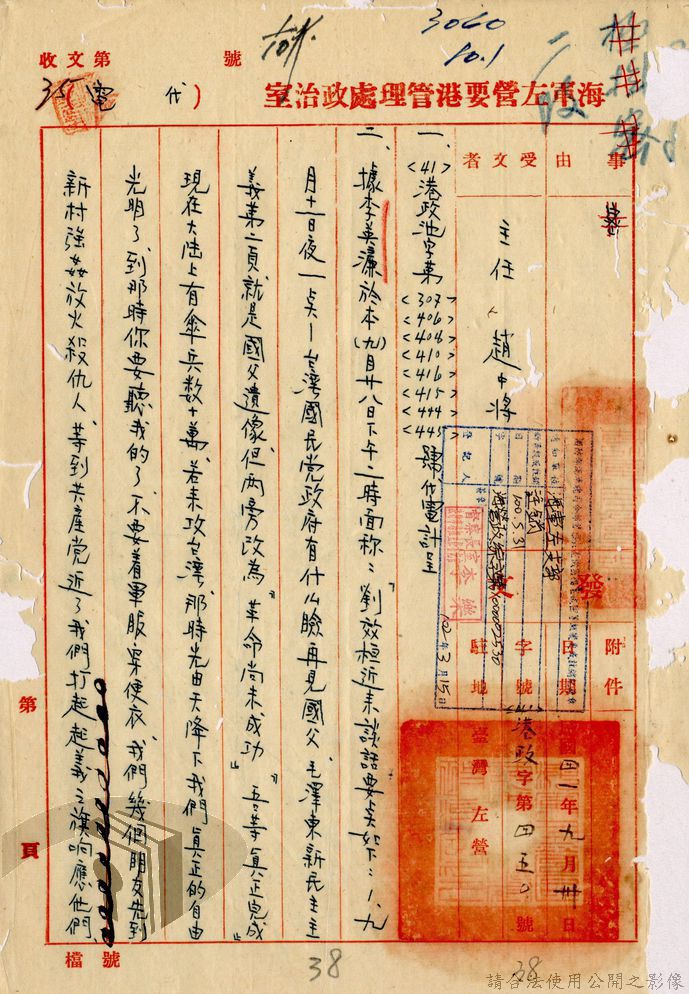 收文第 號
3060
10.1
二
(代電)
35
海軍左營要港管理處政治室
事由
受文者
主任 趙中將
附件
發文
日期 四一年九月卅日
字號 港政字第四五〇號
駐地 臺灣左營
100.5.31
102年3月15日
一、<41>港政池字第<307><406><408><410><416><415><444><445>號代電計呈
二、據李英濂於本(九)月廿八日下午二時面稱：「劉效桓近來談話要点如下：1.九
月十一日夜一点—台灣國民党政府有什仏臉再見國父、毛澤東新民主主
義第二頁就是國父遺像、但两旁改為「革命尚未成功」「吾等真正完成」
現在大陸上有傘兵数十萬、若來攻台灣、那時光由天降下我們真正的自由
光明了、到那時你要聽我的了、不要着軍服、穿便衣、我們幾個朋友先到
新村強姦放火殺仇人、等到共產党近了我們打起起義之旗响應他們、
第 頁
檔號
38
38
請合法使用公開之影像